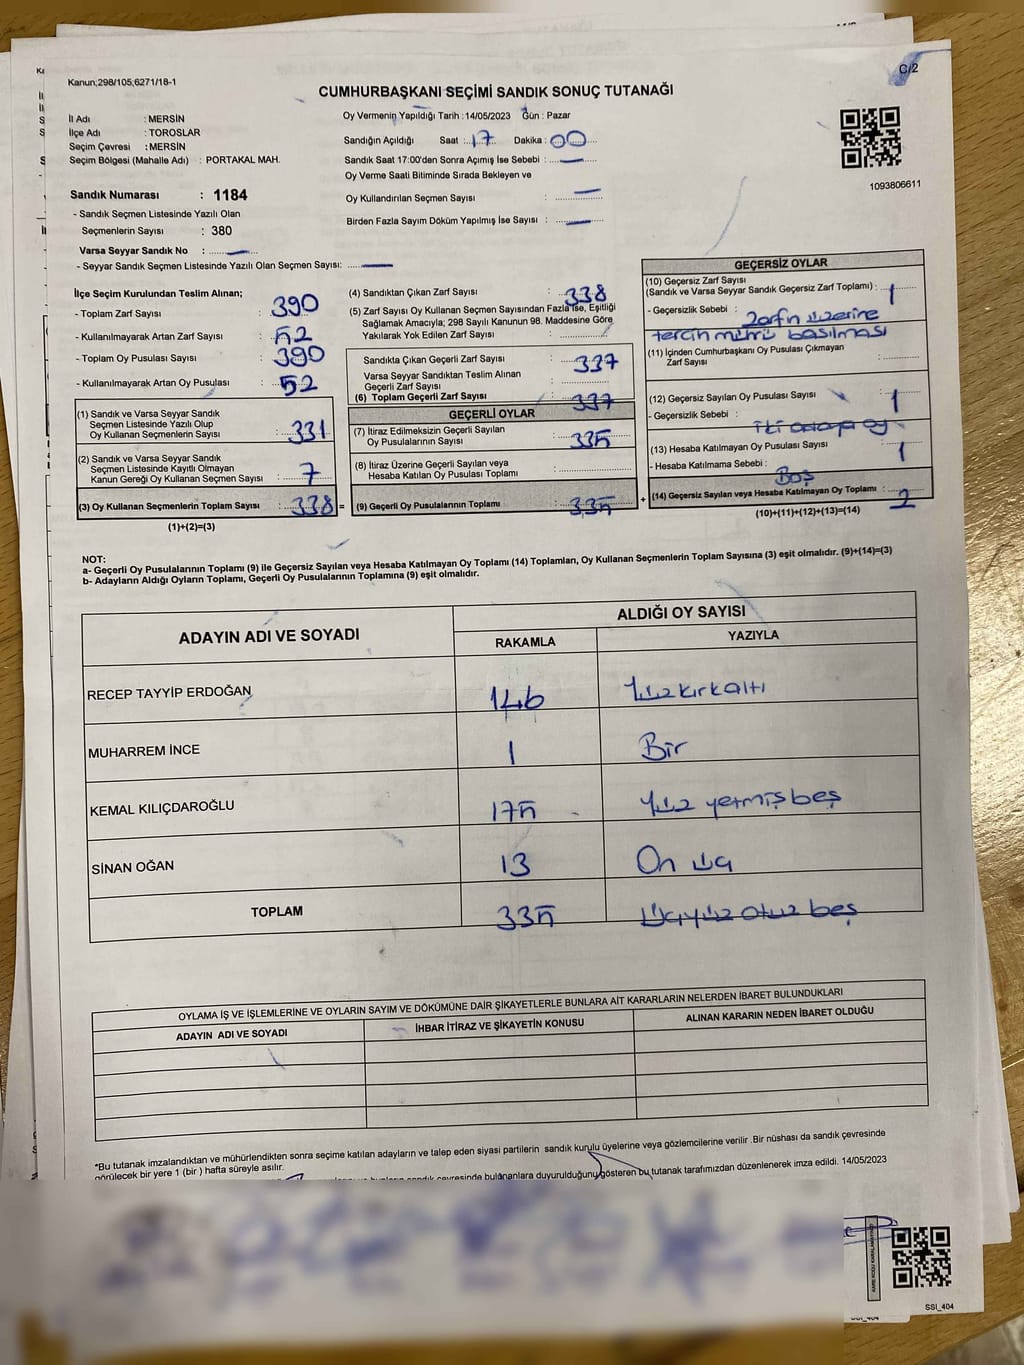 Kanun;298/105,6271/18-1
C/2
CUMHURBAŞKANI SEÇİMİ SANDIK SONUÇ TUTANAĞI
İl Adı : MERSİN
İlçe Adı : TOROSLAR
Seçim Çevresi : MERSİN
Seçim Bölgesi (Mahalle Adı) : PORTAKAL MAH.
Sandık Numarası : 1184
- Sandık Seçmen Listesinde Yazılı Olan
Seçmenlerin Sayısı : 380
Varsa Seyyar Sandık No :
- Seyyar Sandık Seçmen Listesinde Yazılı Olan Seçmen Sayısı:
Oy Vermenin Yapıldığı Tarih : 14/05/2023 Gün : Pazar
Sandığın Açıldığı Saat : 17 Dakika : 00
Sandık Saat 17:00'den Sonra Açımış İse Sebebi :
Oy Verme Saati Bitiminde Sırada Bekleyen ve
Oy Kullandırılan Seçmen Sayısı :
Birden Fazla Sayım Döküm Yapılmış İse Sayısı :
1093806611
İlçe Seçim Kurulundan Teslim Alınan;
- Toplam Zarf Sayısı : 390
- Kullanılmayarak Artan Zarf Sayısı : 52
- Toplam Oy Pusulası Sayısı : 390
- Kullanılmayarak Artan Oy Pusulası : 52
(1) Sandık ve Varsa Seyyar Sandık
Seçmen Listesinde Yazılı Olup
Oy Kullanan Seçmenlerin Sayısı : 331
(2) Sandık ve Varsa Seyyar Sandık
Seçmen Listesinde Kayıtlı Olmayan
Kanun Gereği Oy Kullanan Seçmen Sayısı : 7
(3) Oy Kullanan Seçmenlerin Toplam Sayısı : 338 =
(1)+(2)=(3)
(4) Sandıktan Çıkan Zarf Sayısı : 338
(5) Zarf Sayısı Oy Kullanan Seçmen Sayısından Fazla İse, Eşitliği
Sağlamak Amacıyla; 298 Sayılı Kanunun 98. Maddesine Göre
Yakılarak Yok Edilen Zarf Sayısı :
Sandıkta Çıkan Geçerli Zarf Sayısı : 337
Varsa Seyyar Sandıktan Teslim Alınan
Geçerli Zarf Sayısı :
(6) Toplam Geçerli Zarf Sayısı : 337
GEÇERLİ OYLAR
(7) İtiraz Edilmeksizin Geçerli Sayılan
Oy Pusulalarının Sayısı : 335
(8) İtiraz Üzerine Geçerli Sayılan veya
Hesaba Katılan Oy Pusulası Toplamı :
(9) Geçerli Oy Pusulalarının Toplamı : 335 +
GEÇERSİZ OYLAR
(10) Geçersiz Zarf Sayısı
(Sandık ve Varsa Seyyar Sandık Geçersiz Zarf Toplamı) : 1
- Geçersizlik Sebebi : Zarfın üzerine
tercih mührü basılması
(11) İçinden Cumhurbaşkanı Oy Pusulası Çıkmayan
Zarf Sayısı :
(12) Geçersiz Sayılan Oy Pusulası Sayısı : 1
- Geçersizlik Sebebi : İki ortaya oy
(13) Hesaba Katılmayan Oy Pusulası Sayısı : 1
- Hesaba Katılmama Sebebi : Boş
(14) Geçersiz Sayılan veya Hesaba Katılmayan Oy Toplamı : 2
(10)+(11)+(12)+(13)=(14)
NOT:
a- Geçerli Oy Pusulalarının Toplamı (9) ile Geçersiz Sayılan veya Hesaba Katılmayan Oy Toplamı (14) Toplamları, Oy Kullanan Seçmenlerin Toplam Sayısına (3) eşit olmalıdır. (9)+(14)=(3)
b- Adayların Aldığı Oyların Toplamı, Geçerli Oy Pusulalarının Toplamına (9) eşit olmalıdır.
ADAYIN ADI VE SOYADI ALDIĞI OY SAYISI
RAKAMLA YAZIYLA
RECEP TAYYİP ERDOĞAN 146 Yüzkırkaltı
MUHARREM İNCE 1 Bir
KEMAL KILIÇDAROĞLU 175 Yüz yetmiş beş
SİNAN OĞAN 13 On üç
TOPLAM 335 Üçyüz otuz beş
OYLAMA İŞ VE İŞLEMLERİNE VE OYLARIN SAYIM VE DÖKÜMÜNE DAİR ŞİKAYETLERLE BUNLARA AİT KARARLARIN NELERDEN İBARET BULUNDUKLARI
ADAYIN ADI VE SOYADI İHBAR İTİRAZ VE ŞİKAYETİN KONUSU ALINAN KARARIN NEDEN İBARET OLDUĞU
*Bu tutanak imzalandıktan ve mühürlendikten sonra seçime katılan adayların ve talep eden siyasi partilerin sandık kurulu üyelerine veya gözlemcilerine verilir .Bir nüshası da sandık çevresinde
görülecek bir yere 1 (bir ) hafta süreyle asılır.
sandık çevresinde bulunanlara duyurulduğunu gösteren bu tutanak tarafımızdan düzenlenerek imza edildi. 14/05/2023
SSI_404